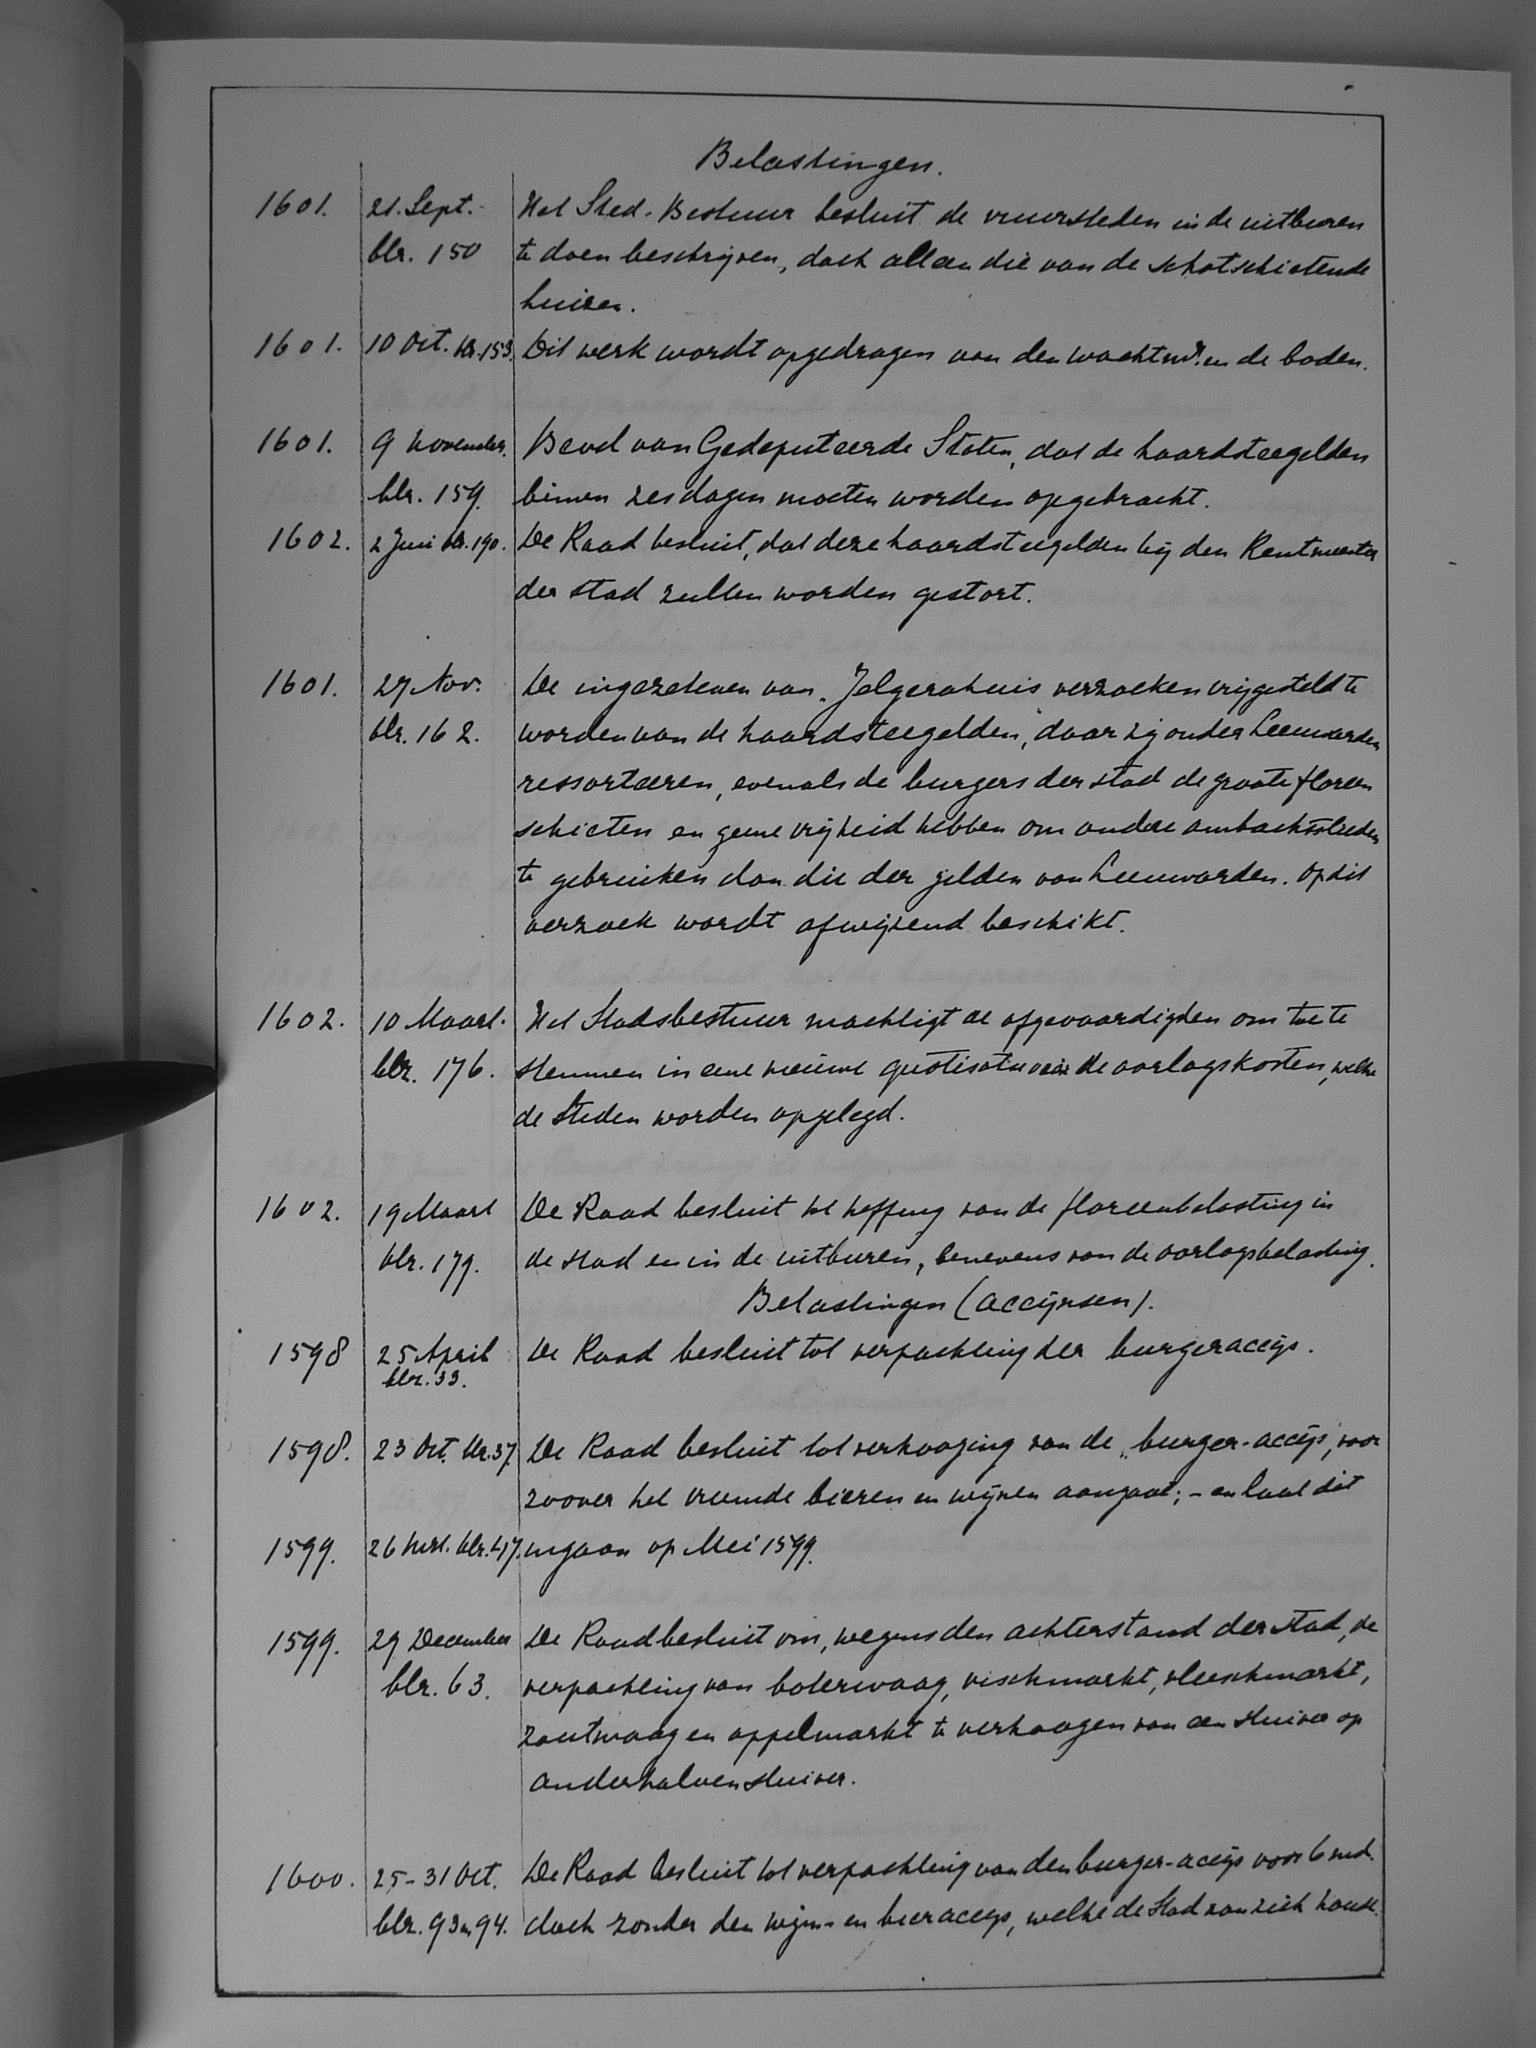 Belastingen.
1601. 21. Sept. Het Sted. Bestuur besluit de vuursteden in de uitburen
blz. 150 te doen beschrijven, doch alleen die van de schotschietende
huizen.
1601. 10 Oct. blz. 153. Dit werk wordt opgedragen aan den wachtmr. en de boden.
1601. 9 November. Bevel van Gedeputeerde Staten, dat de haardsteegelden
blz. 159. binnen zes dagen moeten worden opgebracht.
1602. 2 Juni blz. 190. De Raad besluit, dat deze haardsteegelden bij den Rentmeester
der stad zullen worden gestort.
1601. 27 Nov. De ingezetenen van „Jelgerahuis verzoeken vrijgesteld te
blz. 162. worden van de haardsteegelden," daar zij onder Leeuwarden
ressorteeren, evenals de burgers der stad de groote floreen
schieten en geene vrijheid hebben om andere ambachtslieden
te gebruiken dan die der gilden van Leeuwarden. Op dit
verzoek wordt afwijzend beschikt.
1602. 10 Maart. Het Stadsbestuur machtigt de afgevaardigden om toe te
blz. 176. stemmen in eene nieuwe quotisatie van de oorlogskosten, welke
de Steden worden opgelegd.
1602. 19 Maart De Raad besluit tot heffing van de floreenbelasting in
blz. 179. de stad en in de uitburen, benevens van de oorlogsbelasting.
Belastingen (accijnsen).
1598 25 April De Raad besluit tot verpachting der burgeraccijs.
blz. 33.
1598. 23 Oct. blz. 37. De Raad besluit tot verhooging van de „burger-accijs", voor
zoover het vreemde bieren en wijnen aangaat; - en laat dit
1599. 26 Mrt. blz. 47. ingaan op Mei 1599.
1599. 29 December De Raad besluit om, wegens den achterstand der stad, de
blz. 63. verpachting van boterwaag, vischmarkt, vleeschmarkt,
zoutwaag en appelmarkt te verhoogen van een stuiver op
anderhalven stuiver.
1600. 25-31 Oct. De Raad besluit tot verpachting van den burger-accijs voor 6 md.
blz. 93 en 94. doch zonder den wijn- en bieraccijs, welke de Stad aan zich houdt.